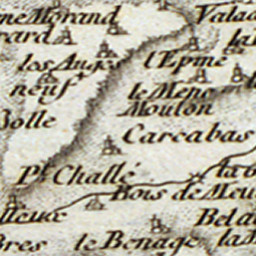 ne Morand
Valad
rard
la
los Anges
l'Epine
neuf
le Mens
Moulon
Bolle
Carcabas
Pt. Challé
la b
Bois de Meu
lleux
Bela
Bres
le Benage
la